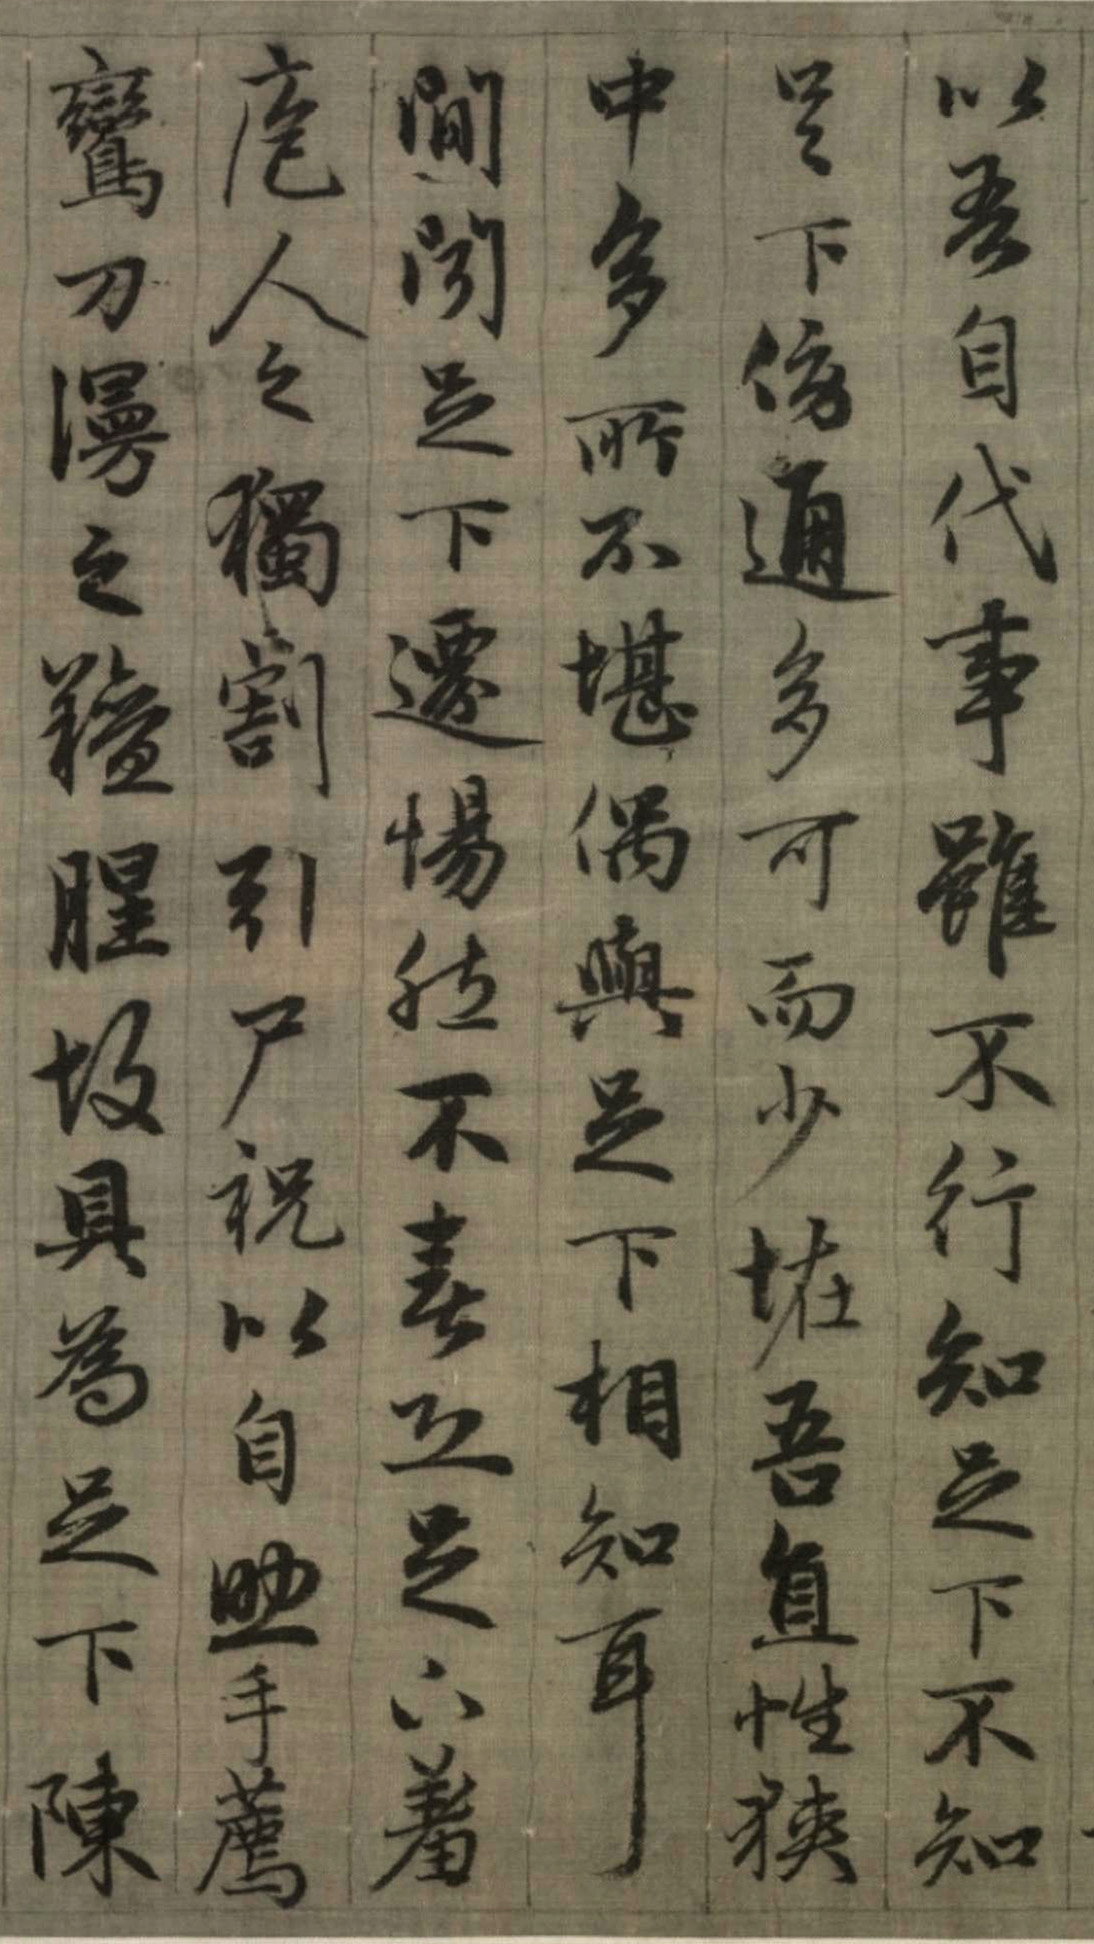 以吾自代事雖不行知足下不知
足下傍通多可而少怪吾直性狹
中多所不堪偶與足下相知耳
間聞足下遷惕然不喜恐足下羞
庖人之獨割引尸祝以自助手薦
鸞刀漫之羶腥故具為足下陳